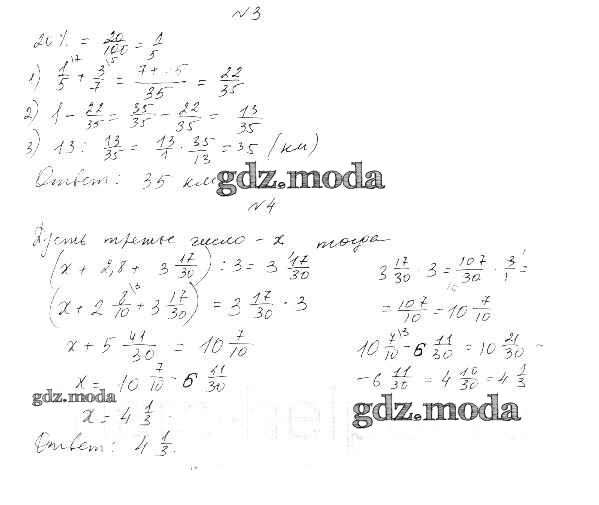 №3
20% = 20/100 = 1/5
1) 1/5 + 3/7 = 7+15/35 = 22/35
2) 1 - 22/35 = 35/35 - 22/35 = 13/35
3) 13 : 13/35 = 13/1 · 35/13 = 35 (км)
Ответ: 35 км
gdz.moda
№4
Пусть третье число - x тогда
(x + 2,8 + 3 17/30) : 3 = 3 17/30
(x + 2 8/10 + 3 17/30) = 3 17/30 · 3
x + 5 41/30 = 10 7/10
x = 10 7/10 - 6 11/30
x = 4 1/3
Ответ: 4 1/3.
3 17/30 · 3 = 107/30 · 3/1 =
= 107/10 = 10 7/10
10 7/10 - 6 11/30 = 10 21/30 -
- 6 11/30 = 4 10/30 = 4 1/3
gdz.moda
gdz.moda